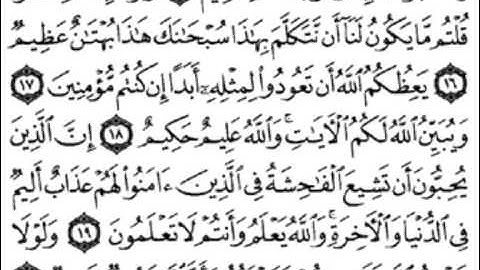 قُلْتُم مَّا يَكُونُ لَنَآ أَن نَّتَكَلَّمَ بِهَٰذَا سُبْحَٰنَكَ هَٰذَا بُهْتَٰنٌ عَظِيمٌ
١٦ يَعِظُكُمُ ٱللَّهُ أَن تَعُودُوا۟ لِمِثْلِهِۦٓ أَبَدًا إِن كُنتُم مُّؤْمِنِينَ ١٧
وَيُبَيِّنُ ٱللَّهُ لَكُمُ ٱلْءَايَٰتِ ۚ وَٱللَّهُ عَلِيمٌ حَكِيمٌ ١٨ إِنَّ ٱلَّذِينَ
يُحِبُّونَ أَن تَشِيعَ ٱلْفَٰحِشَةُ فِى ٱلَّذِينَ ءَامَنُوا۟ لَهُمْ عَذَابٌ أَلِيمٌ
فِى ٱلدُّنْيَا وَٱلْءَاخِرَةِ ۚ وَٱللَّهُ يَعْلَمُ وَأَنتُمْ لَا تَعْلَمُونَ ١٩ وَلَوْلَا